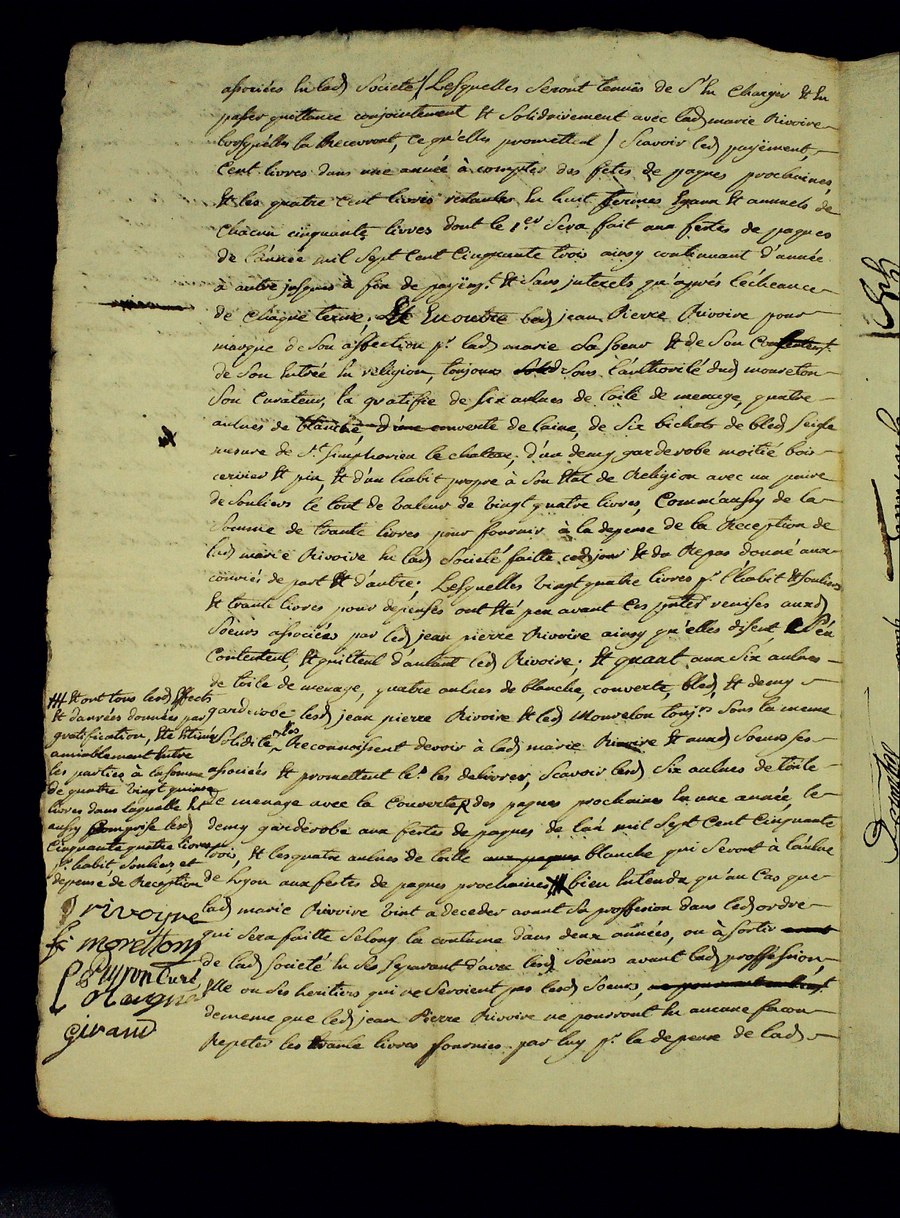 associées en lad societé / Lesquelles seront tenues de s'en charger Et en
passer quittance conjointement Et solidairement avec lad marie Rivoire
lorsqu'elles la Recevront, ce qu'elles promettent / scavoir led payement,
Cent livres dans une année à compter des fêtes de paques prochaines,
Et les quatre cent livres restantes en huit termes Egaux Et annuels de
chacun cinquante livres dont le 1.er sera fait aux festes de paques
de l'année mil sept cent cinquante trois ainsy continuant d'année
à autre jusques à fin de payem.t Et sans interets qu'après l'écheance
de chaque terme. Et Enoutre led jean Pierre Rivoire pour
marque de son affection p.r lad marie sa soeur Et de son
de son entrée en religion, toujours sous l'authorité dud mourelon
son curateur, la gratifie de six aulnes de toile de menage, quatre
aulnes de blanche, d'une couverte de laine, de six bichets de bled seigle
mesure de S.t Simphorien le chateau, d'un demy garderobe moitié bois
cerisier Et pin, Et d'un habit propre à son Etat de Religion avec un paire
de souliers le tout de valeur de vingt quatre livres, Comm'aussy de la
somme de trente livres pour fournir à la depense de la Reception de
lad marie Rivoire en lad societé faitte cedjour Et du Repas donné aux
conviés de part Et d'autre; Lesquelles vingt quatre livres p.r l'habit Et souliers
Et trente livres pour depenses ont Eté peu avant ces pntes remises auxd
soeurs associées par led jean pierre Rivoire ainsy qu'elles disent s'en
Contentent, Et quittent d'autant led Rivoire; Et quant aux six aulnes
de toile de menage, quatre aulnes de blanche, couverte, bled, Et demy
garderobe lesd jean pierre Rivoire Et led Mourelon touj.rs sous la meme
solidité Reconnoissent devoir à lad marie Rivoire Et auxd soeurs ses
associées Et promettent le.s les delivrer, scavoir lesd six aulnes de toile
de menage avec la Couverte des paques prochaines en une année, le
demy garderobe aux festes de paques de l'an mil sept cent cinquante
trois, Et les quatre aulnes de toille aux paques blanche qui seront à l'aulne
de Lyon aux festes de paques prochaines bien entendu qu'au cas que
lad marie Rivoire vint a deceder avant sa proffession dans led ordre
qui sera faitte selong la coutume dans deux années, ou à sortir
de lad societé en ses separant d'avec lesd soeurs avant lad proffession,
Elle ou ses heritiers qui ne seroient pas lesd soeurs,
demême que led jean Pierre Rivoire ne pourront en aucune facon
Repeter les trente livres fournies par luy p.r la depense de lad
Et ont tous lesd Effects
Et danrées données par
gratification, Eté Estimés
amiablement entre
les parties à la somme
de quatre vingt quinze
livres dans laquelle Est
aussy comprise lesd
cinquante quatre livres
p.r habit, souliers et
depense de Reception
rivoyre
moretton
peyron curé
giraud